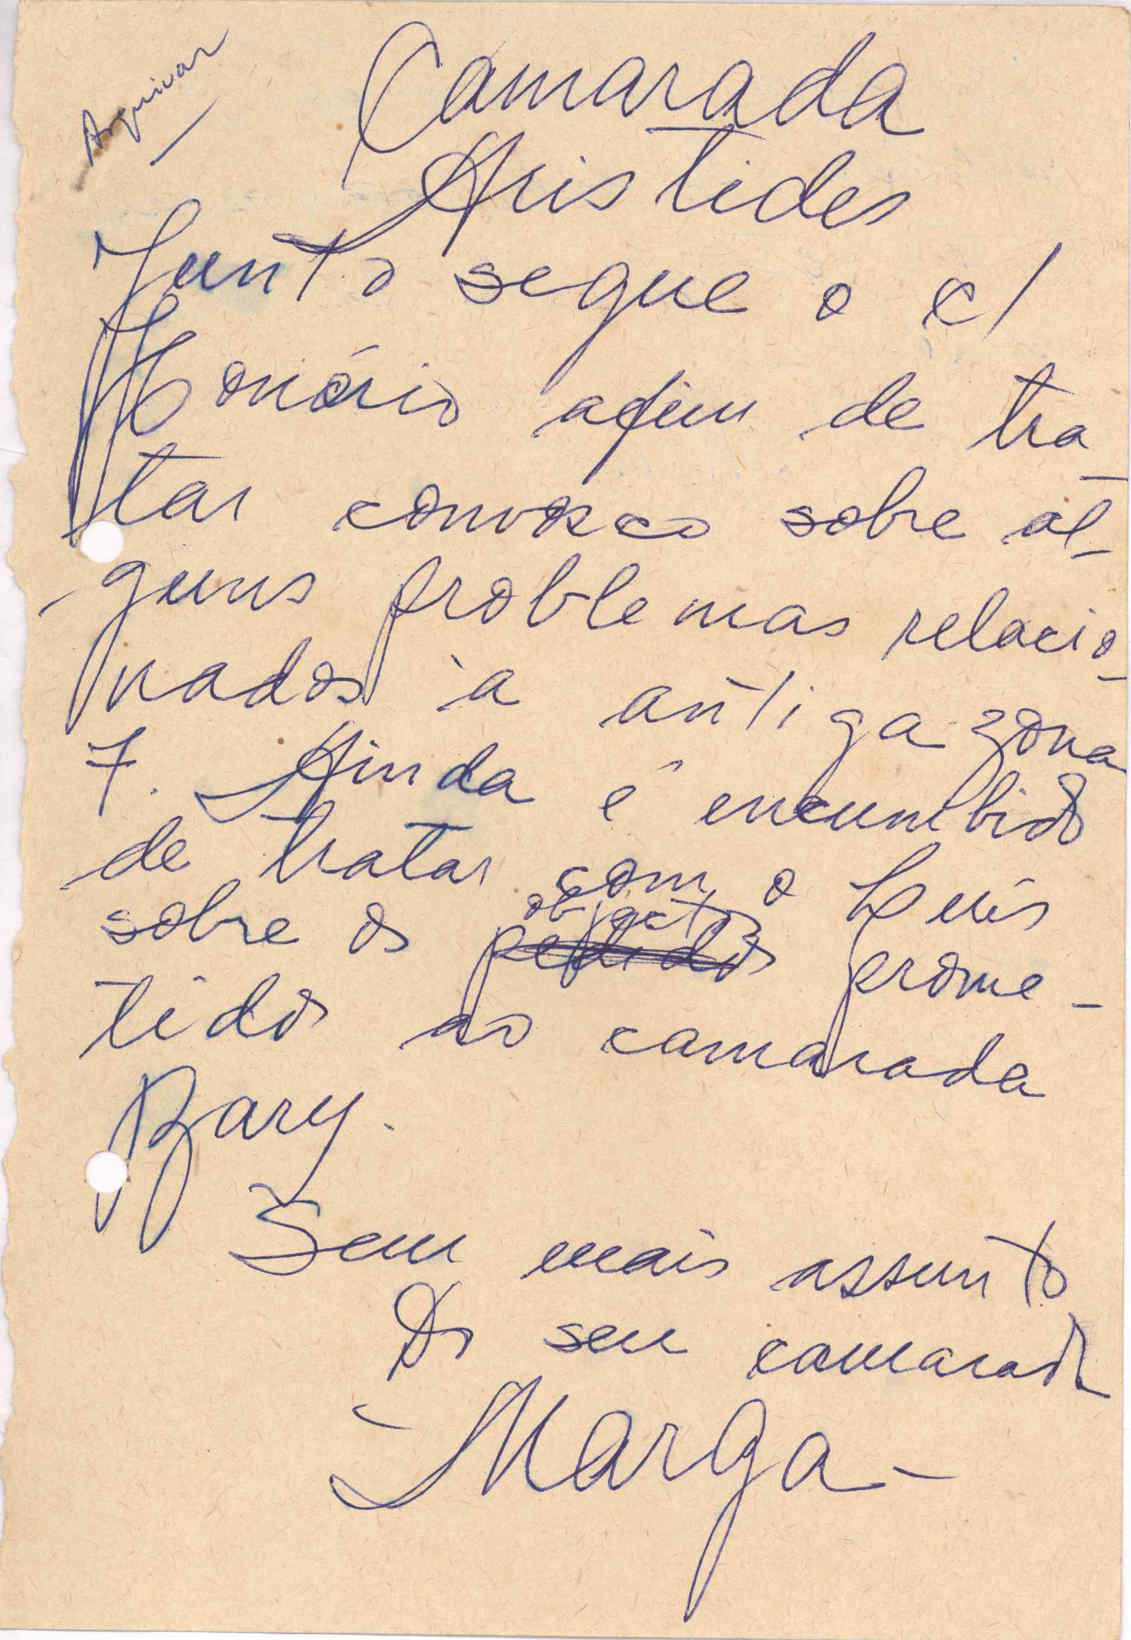 Arquivar
Camarada
Aristides
Junto segue o c/
Honório afim de tra-
tar convosco sobre al-
guns problemas relacio-
nados à antiga zona
7. Ainda é encumbido
de tratar com o Luis
sobre os pedidos objectos prome-
tidos ao camarada
Bary.
Sem mais assunto
Do seu camarada
- Marga -